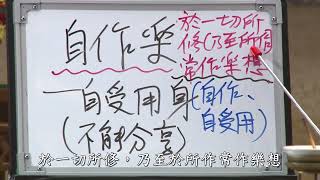 自作樂
於一切所
修(乃至所作)
常作樂想
自受用身(自作、
自受用)
(不能分享)
於一切所修，乃至於所作常作樂想